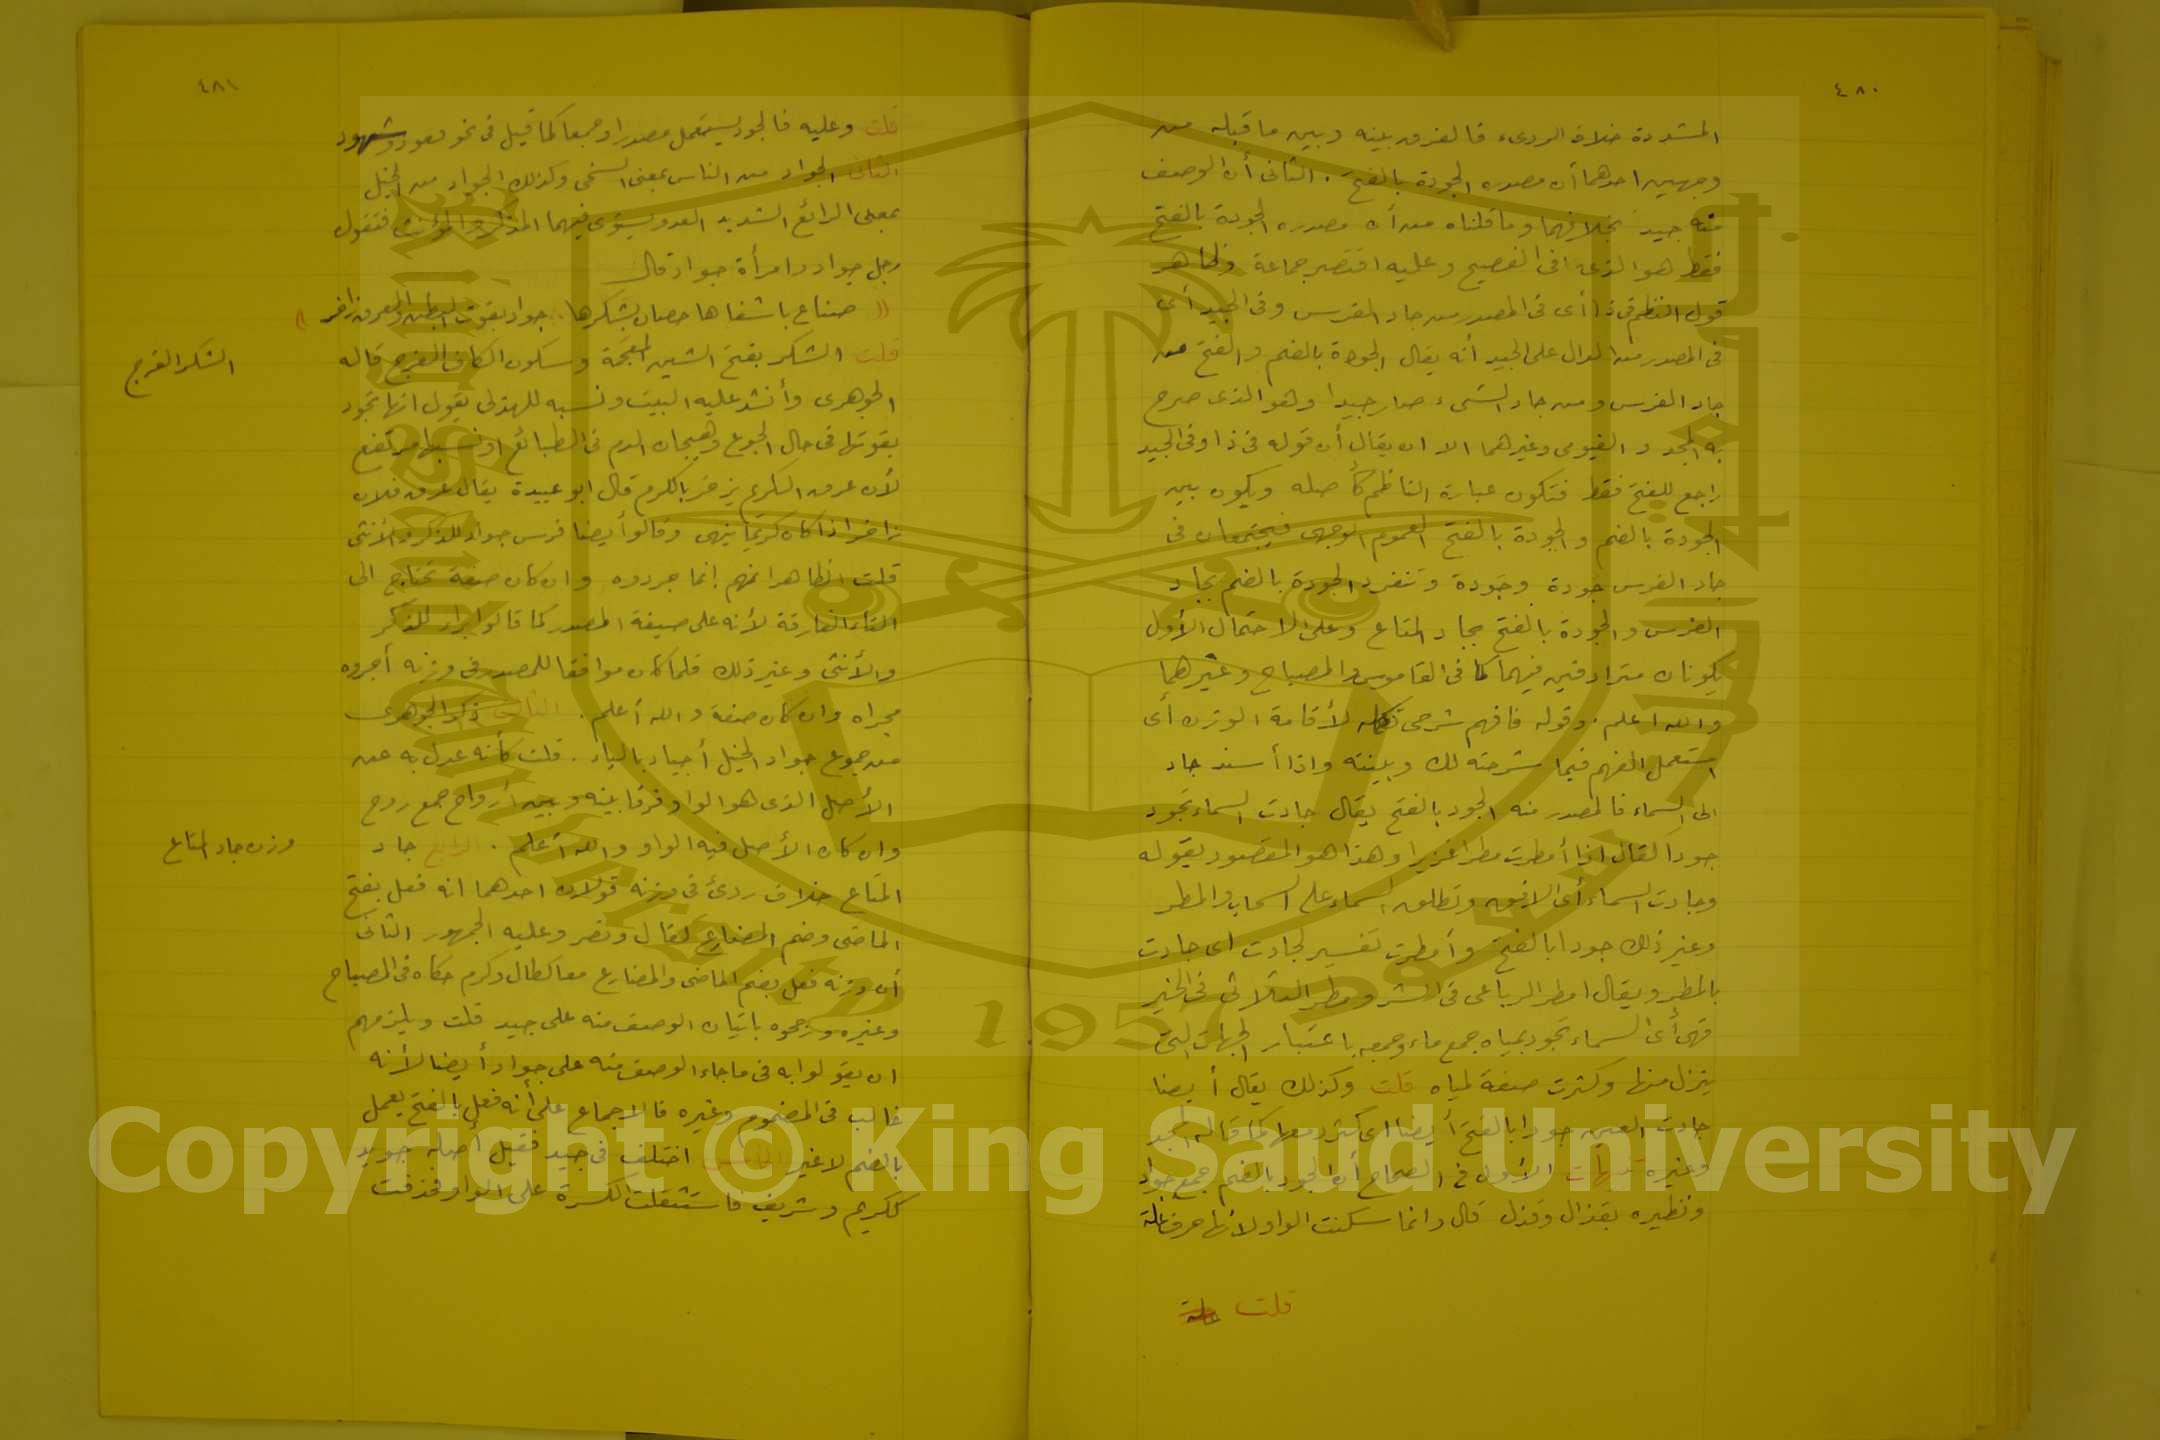 ٤٨٠
المشددة خلاف الردىء فالفرق بينه وبين ما قبله من
وجهين احدهما أن مصدره الجودة بالفتح . الثانى أن الوصف
منه جيد بخلافهما وما قلناه من أن مصدره الجودة بالفتح
فقط هو الذى فى الفصيح وعليه اقتصر جماعة وظاهر
قول الناظم فى ذا أى فى المصدر من جاد الفرس وفى الجيد أى
فى المصدر من الدال على الجيد أنه يقال الجودة بالضم والفتح من
جاد الفرس ومن جاد الشىء صار جيدا وهو الذى صرح
به المجد و الفيومى وغيرهما الا ان يقال أن قوله فى ذا وفى الجيد
راجع للفتح فقط فتكون عبارة الناظم كأصله ويكون بين
الجودة بالضم والجودة بالفتح العموم الوجهى فيجتمعان فى
جاد الفرس جودة وجودة وتنفرد الجودة بالضم بجاد
الفرس والجودة بالفتح بجاد المتاع وعلى الاحتمال الأول
يكونان مترادفين فيهما كما فى القاموس والمصباح وغيرهما
والله اعلم . وقوله فافهم شرحى تكملة لأقامة الوزن أى
استعمل الفهم فيما شرحته لك وبينته واذا أسند جاد
الى السماء فالمصدر منه الجود بالفتح يقال جادت السماء تجود
جودا كقال اذا أمطرت مطرا غزيرا وهذا هو المقصود بقوله
وجادت السماء أى الافق وتطلق السماء على السحاب والمطر
وغير ذلك جودا بالفتح وأمطرت تفسير لجادت اى جادت
بالمطر ويقال امطر الرباعى فى الشر ومطر الثلاثى فى الخير
فهى أى السماء تجود بمياه جمع ماء وجمعه باعتبار الجهات التى
ينزل منها وكثرت صفة لمياه قلت وكذلك يقال أيضا
جادت العين جودا بالفتح أيضا اى كثر دمعها كما قاله المجد
وغيره تنبيهات الأول فى الصحاح أن الجود بالضم جمع جواد
ونظيره بقذال وقذل قال وانما سكنت الواو لأنها حرف علة
قلت
٤٨١
قلت وعليه فالجود يستعمل مصدرا وجمعا كما قيل فى نحو قعود وشهود
الثانى الجواد من الناس بمعنى السخى وكذلك الجواد من الخيل
بمعنى الرائع الشديد العدو يستوى فيهما المذكر والمؤنث فتقول
رجل جواد وامرأة جواد قال
(( صناع باشفاها حصان بشكرها .. جواد بقوت البطن والعرق زاخر ))
قلت الشكر بفتح الشين المعجمة وسكون الكاف الفرج قاله
الشكر الفرج
الجوهرى وأنشد عليه البيت ونسبه للهذلى يقول انها تجود
بقوتها فى حال الجوع وهيجان الدم فى الطبائع او نسبها مرتفع
لأن عرق الكريم يزخر بالكرم قال ابو عبيدة يقال عرق فلان
زاخر اذا كان كريما ينمى وقالوا أيضا فرس جواد للذكر والأنثى
قلت الظاهر انهم انما جردوه وان كان صفة تحتاج الى
التاء الفارقة لأنه على صيغة المصدر كما قالوا براد للذكر
والأنثى وغير ذلك فلما كان موافقا للمصدر فى وزنه أجروه
مجراه وان كان صفة والله أعلم . الثالث ذكر الجوهرى
من جموع جواد الخيل أجياد بالياء . قلت كأنه عدل به عن
الأصل الذى هو الواو فرقا بينه وبين أرواح جمع روح
وان كان الأصل فيه الواو والله أعلم . الرابع جاد
وزن جاد المتاع
المتاع خلاف ردئ فى وزنه قولان احدهما انه فعل بفتح
الماضى وضم المضارع كقال ونصر وعليه الجمهور الثانى
أن وزنه فعل بضم الماضى والمضارع معا كطال وكرم حكاه فى المصباح
وغيره ورجحوه باتيان الوصف منه على جيد قلت ويلزمهم
ان يقولوا به فى ما جاء الوصف منه على جواد أيضا لأنه
غالب فى المضموم وغيره فالاجماع على أنه فعل بالفتح يعمل
بالضم لا غير الخامس اختلف فى جيد فقيل أصله جويد
ككريم وشريف فاستثقلت الكسرة على الواو فحذفت
Copyright © King Saud University
1957